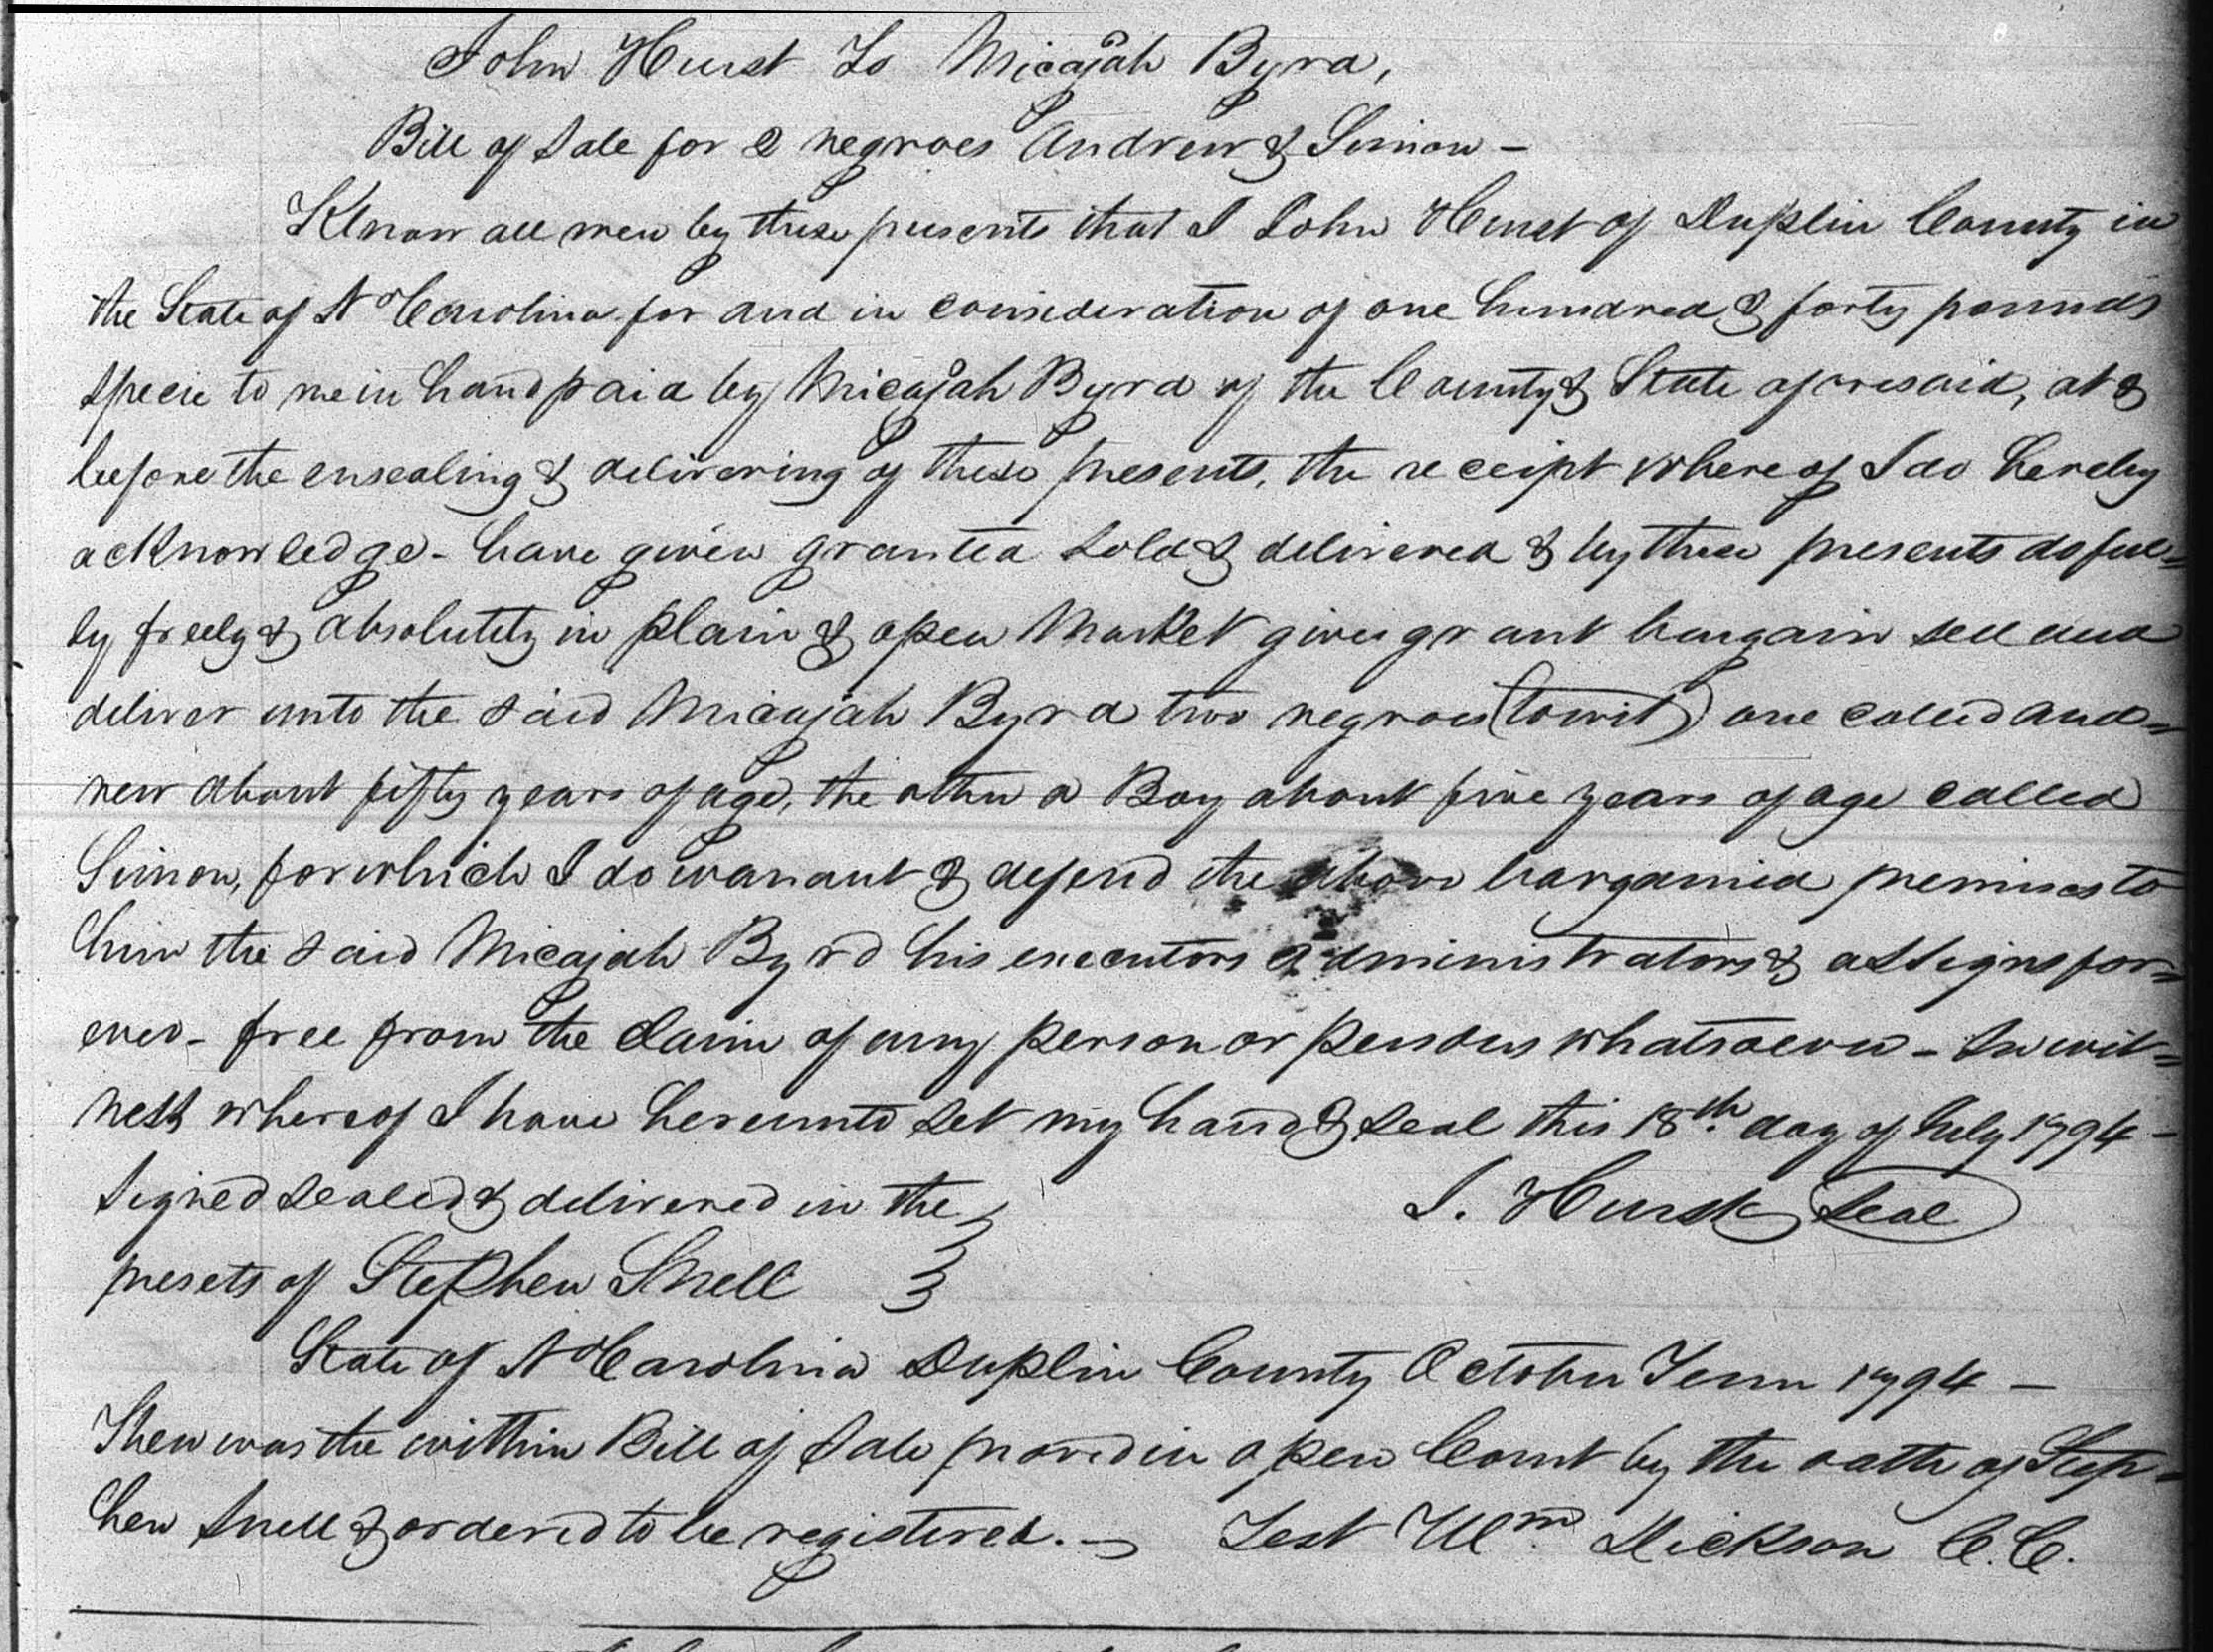 John Hurst To Micajah Byrd,
Bill of Sale for 2 negroes Andrew & Simon –
Know all men by these presents that I John Hurst of Duplin County in
the State of No Carolina for and in consideration of one hundred & forty pounds
Specie to me in hand paid by Micajah Byrd of the County & State aforesaid, at &
before the ensealing & delivering of these presents, the receipt where of I do hereby
acknowledge - have given granted sold & delivered & by these presents do ful=
ly freely & absolutely in plain & open Market give grant bargain sell and
deliver unto the said Micajah Byrd two negroes (towit) one called And=
rew about fifty years of age, the other a Boy about five years of age called
Simon, for which I do warrant & defend the above bargained premises to
him the said Micajah Byrd his executors administrators & assigns for=
ever - free from the claim of any person or persons whatsoever – In wit=
ness whereof I have hereunto set my hand & seal this 18th day of July 1794 –
Signed sealed & delivered in the
J. Hurst Seal
presets of Stephen Snell
State of No Carolina Duplin County October Term 1794 –
Then was the within Bill of Sale proved in open Court by the oath of Step=
hen Snell & ordered to be registered. – Test Wm. Dickson C.C.